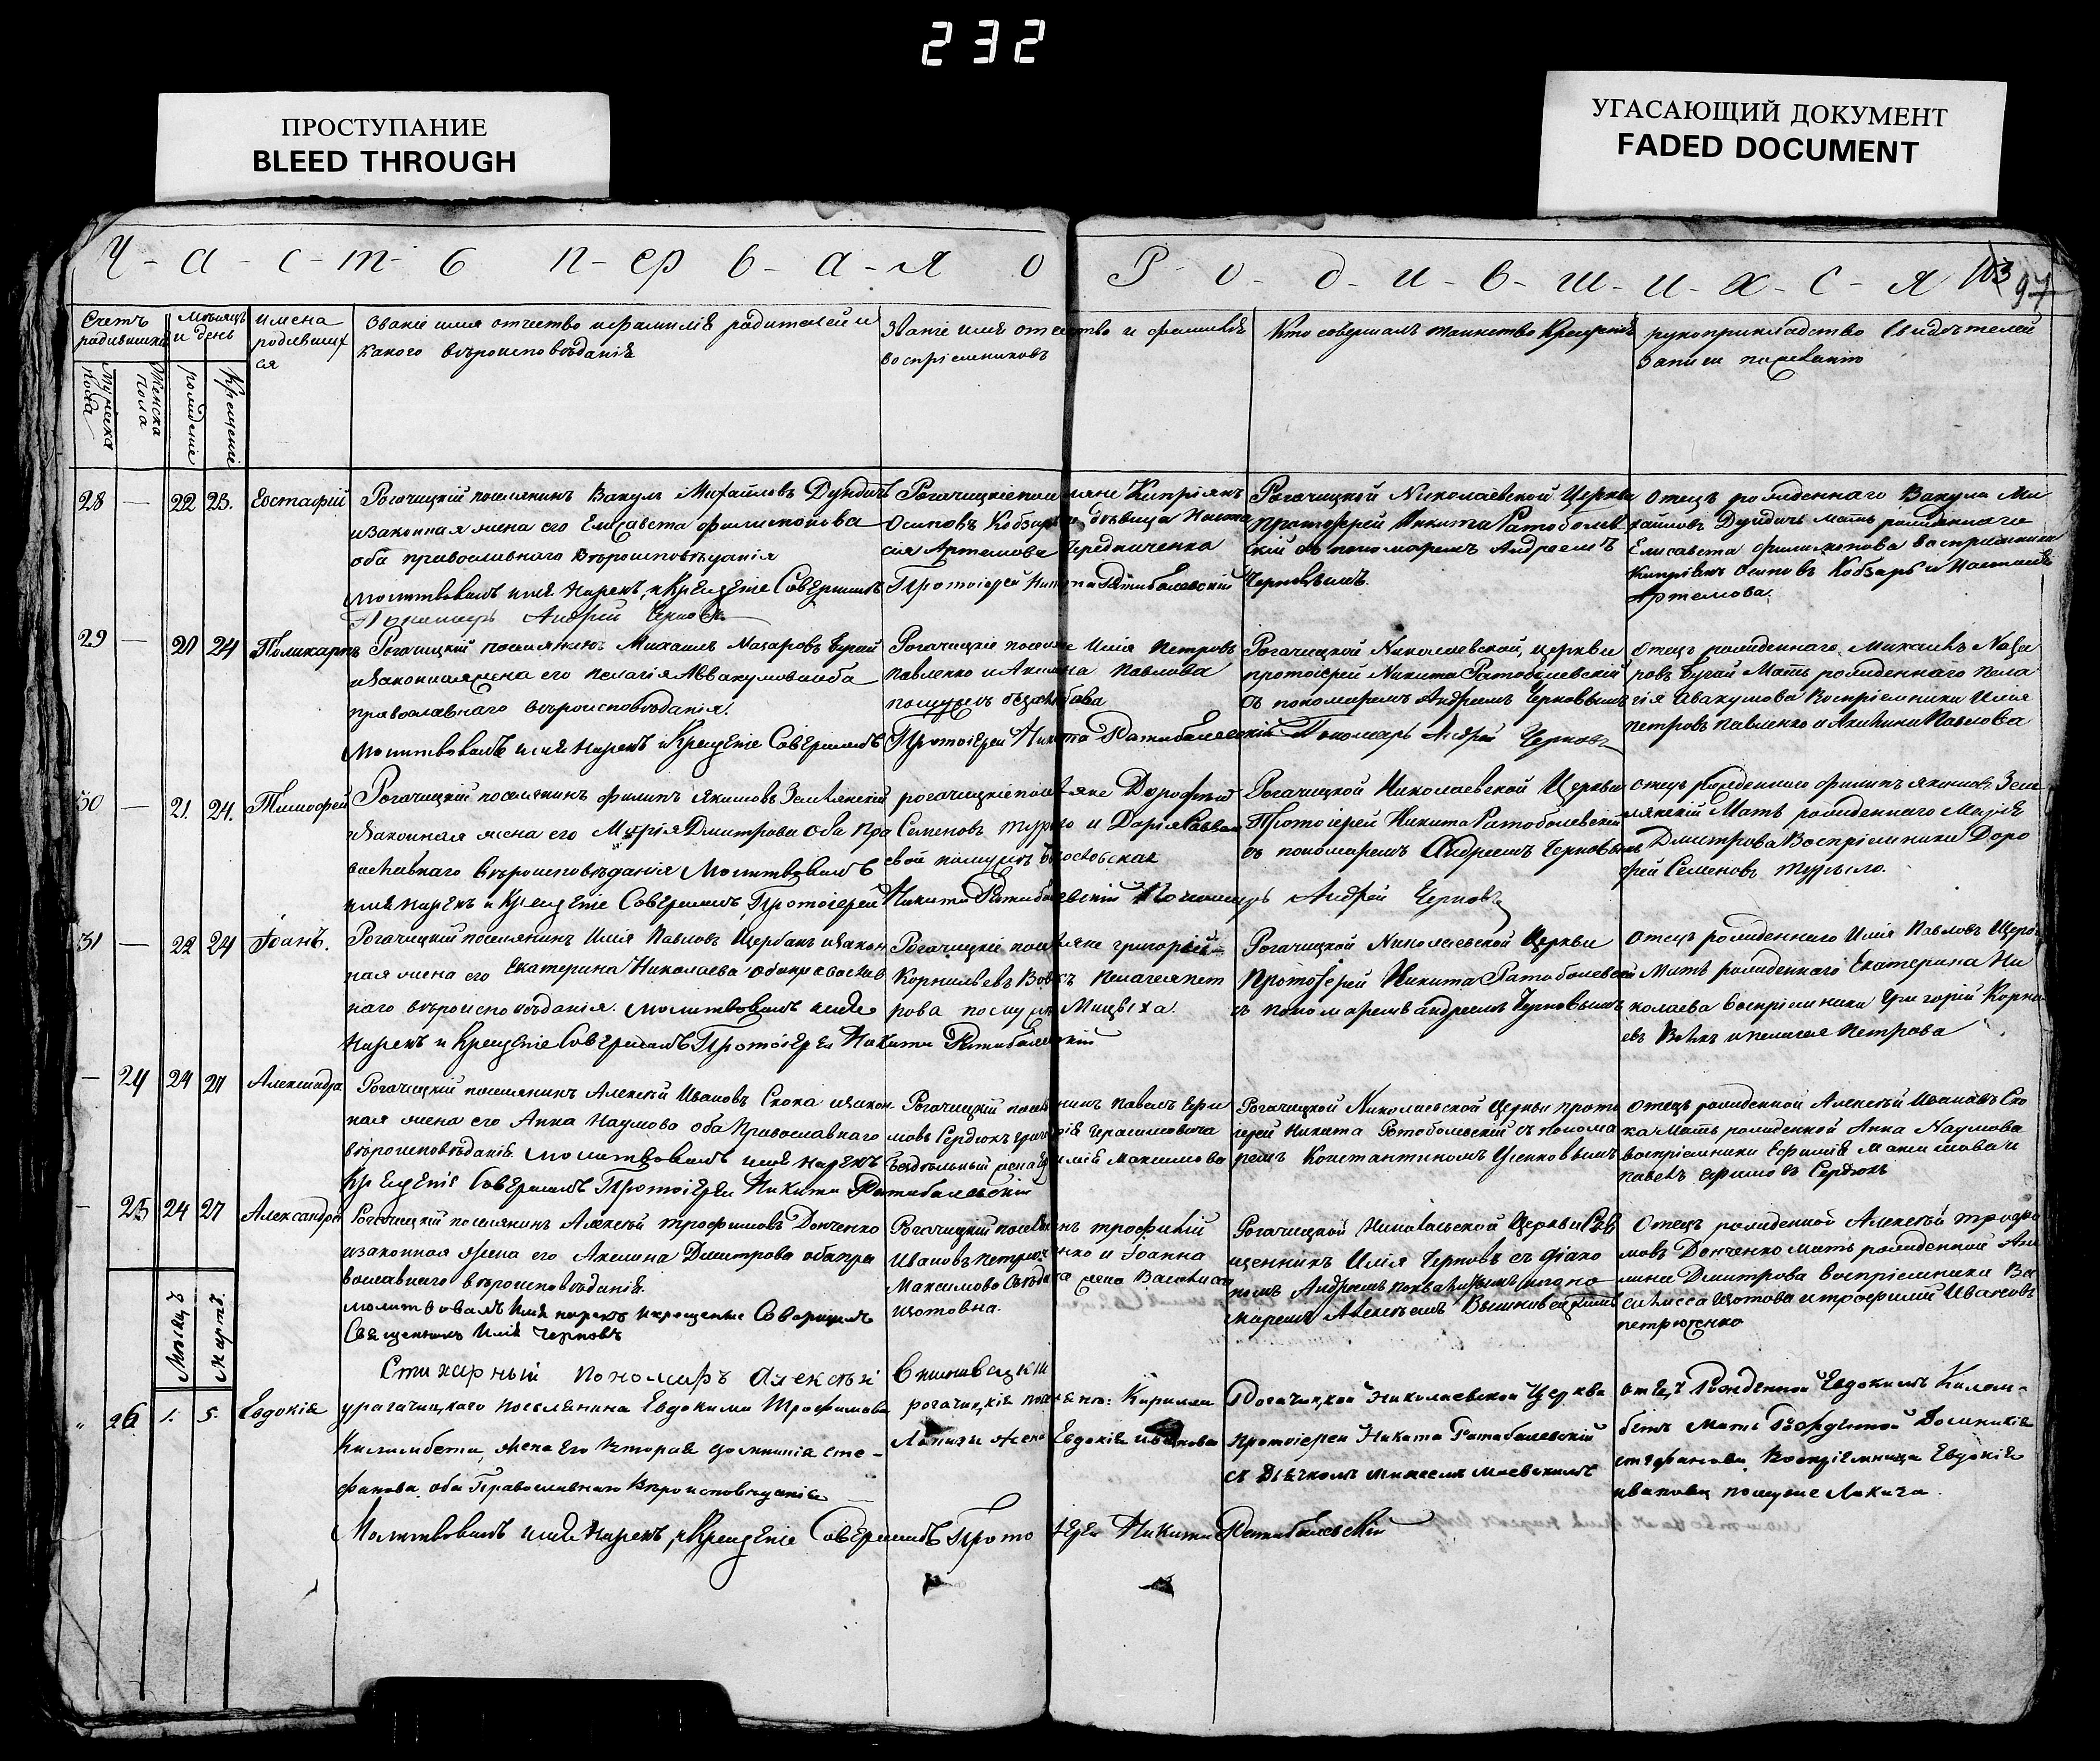 232
ПРОСТУПАНИЕ
BLEED THROUGH
УГАСАЮЩИЙ ДОКУМЕНТ
FADED DOCUMENT
Ч-а-с-т-ь п-ер в-а-я о Р-о-д-и-в-ш-и-х-с-я 103 97
Счетъ родившихся
Мужеска пола
Женска пола
Мѣсяцъ и день
рожденіе
Крещеніе
имена родившихся
Званіе имя отчество и фамилія родителей и
какого вѣроисповѣданія
Званіе имя отчество и фамилія
воспріемниковъ
Кто совершалъ таинство Крещенія
рукоприкладство свидѣтелей
записи по желанію
28 — 22 23. Евстафій
Рогачицкій поселянинъ Вакулъ Михайловъ Дундичъ
и законная жена его Елисавета Филимонова
оба православнаго вѣроисповѣданія
Молитвовалъ имя нарекъ, и Крещеніе Совершилъ Протоіерей Никита Ратиболевскій
Пономарь Андрей Черновъ
Рогачицкіе поселяне Кипріянъ
Осиповъ Кобзарь и дѣвица Наста
сія Артемова Чередниченко
Рогачицкой Николаевской Церкви
протоіерей Никита Ратоболев
скій съ пономаремъ Андреемъ
Черновымъ.
Отецъ рожденнаго Вакулъ Ми
хайловъ Дундичъ мать рожденнаго
Елисавета Филимонова воспріемники
Кипріянъ Осиповъ Кобзарь и Настасія
Артемова.
29 — 21 24 Поликарпъ
Рогачицкій поселянинъ Михаилъ Назаровъ Бугай
и законная жена его Пелагія Аввакумова оба
православнаго вѣроисповѣданія.
Молитвовалъ имя нарекъ и Крещеніе Совершилъ Протоіерей Никита Ратиболевскій Пономарь Андрей Черновъ
Рогачицкіе поселяне Илія Петровъ
Павленко и Акилина Павлова
Рогачицкой Николаевской, церкви
протоіерей Никита Ратоболевскій
съ пономаремъ Андреемъ Черновымъ
отецъ рожденнаго Михаилъ Наза
ровъ Бугай Мать рожденнаго Пела
гія Авакумова Воспріемники Илія
Петровъ Павленко и Акилина Павлова
30 — 21. 24. Тимофей
Рогачицкій поселянинъ Филипъ Якимовъ Землянскій
и законная жена его Марія Дмитрова оба пра
вославнаго вѣроисповѣданія Молитвовалъ
имя нарекъ и Крещеніе Совершилъ, Протоіерей Никита Ратиболевскій Пономарь Андрей Черновъ
рогачицкіе поселяне Дорофей
Семеновъ и Дарія
Рогачицкой Николаевской Церкви
Протоіерей Никита Ратоболевскій
съ пономаремъ Андреемъ Черновымъ
отецъ рожденнаго Филипъ Якимовъ Зем
лянскій Мать рожденнаго Марія
Дмитрова Воспріемники Доро
фей Семеновъ
31 — 22 24 Іоанъ.
Рогачицкій поселянинъ Илія Павловъ Щербакъ и закон
ная жена его Екатерина Николаева оба православ
наго вѣроисповѣданія. Молитвовалъ имя
Нарекъ и Крещеніе Совершилъ Протоіерей Никита Ратиболевскій
Рогачицкіе поселяне Григорій
Корнильевъ Волкъ Пелагея Пет
рова по мужу
Рогачицкой Николаевской Церкви
Протоіерей Никита Ратоболевскій
съ пономаремъ Андреемъ Черновымъ
Отецъ рожденнаго Илія Павловъ Щерб
Мать рожденнаго Екатерина Ни
колаева воспріемники Григорій Корни
евъ Волкъ и Пелагея Петрова
— 24 24 27 Александра
Рогачицкій поселянинъ Алексѣй Ивановъ Скока и закон
ная жена его Анна Наумова оба Православнаго
вѣроисповѣданія. Молитвовалъ имя нарекъ
Крещеніе Совершилъ Протоіерей Никита Ратиболевскій
Рогачицкій поселянинъ Павелъ Ефи
мовъ Сердюкъ Герасимовича
жена Максимова
Рогачицкой Николаевской Церкви прото
іерей Никита Ратоболевскій съ понома
ремъ Константиномъ
Отецъ рожденной Алексѣй Ивановъ Ско
ка Мать рожденной Анна Наумова
воспріемники Ефимія Максимова и
павелъ Ефимовъ Сердюкъ
— 25 24 27 Александра
Рогачицкій поселянинъ Алексѣй Трофимовъ Донченко
и законная жена его Акилина Дмитрова оба пра
вославнаго вѣроисповѣданія.
Молитвовалъ Имя нарекъ и крещеніе Совершилъ
Священникъ Илія Черновъ
Стихарный Пономаръ Алексѣй Вишневецкій
Рогачицкій поселянинъ Трофимій
Ивановъ Петрюченко и Іоанна
Максимова жена
Рогачицкой Николаевской Церкви Свя
щенникъ Илія Черновъ съ діако
номъ Андреемъ и поно
маремъ Алексѣемъ Вишневецкимъ
Отецъ рожденной Алексѣй Трофи
мовъ Донченко мать рожденной Аки
лина Дмитрова воспріемники Ва
силисса и Трофимій Ивановъ
Петрюченко
Мѣсяцъ
Мартъ.
" 26 1. 5. Евдокія
у рогачицкаго поселянина Евдокима Трофимова
Килимбета, жена его вторая Домникія Сте-
фанова, оба Православнаго Вѣроисповѣданія
Молитвовалъ имя Нарекъ, и Крещеніе Совершилъ Протоіерей Никита Ратиболевскій
рогачицкія посе Кирилла
жена Евдокія Иванова
Рогачицкой Николаевской Церкви
Протоіерей Никита Ратаболевскій
съ Дьячкомъ Маевскимъ
отецъ Рожденной Евдокимъ Килим-
бетъ Мать Рожденной Домникія
Стефанова. Воспріемница Евдокія
Иванова по мужу